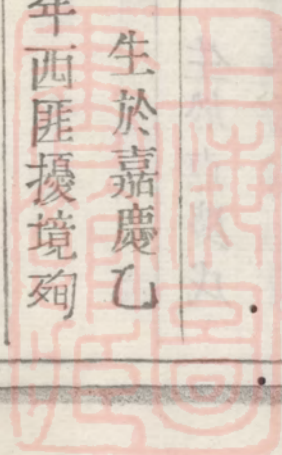 生於嘉慶乙
年西匪擾境殉